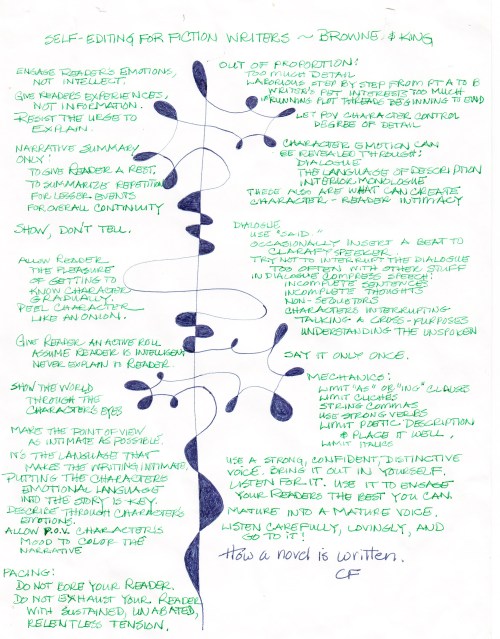 SELF-EDITING FOR FICTION WRITERS ~ BROWNE & KING
ENGAGE READER'S EMOTIONS,
NOT INTELLECT.
GIVE READERS EXPERIENCES,
NOT INFORMATION.
RESIST THE URGE TO
EXPLAIN.
NARRATIVE SUMMARY
ONLY:
TO GIVE READER A REST.
TO SUMMARIZE REPETITION
FOR LESSER EVENTS
FOR OVERALL CONTINUITY
SHOW, DON'T TELL.
ALLOW READER
THE PLEASURE
OF GETTING TO
KNOW CHARACTER
GRADUALLY.
PEEL CHARACTER
LIKE AN ONION.
GIVE READER AN ACTIVE ROLL
ASSUME READER IS INTELLIGENT
NEVER EXPLAIN TO READER.
SHOW THE WORLD
THROUGH THE
CHARACTER'S EYES
MAKE THE POINT OF VIEW
AS INTIMATE AS POSSIBLE.
IT'S THE LANGUAGE THAT
MAKE THE WRITING INTIMATE,
PUTTING THE CHARACTER'S
EMOTIONAL LANGUAGE
INTO THE STORY IS KEY.
DESCRIBE THROUGH CHARACTER'S
EMOTIONS.
ALLOW P.O.V. CHARACTER'S
MOOD TO COLOR THE
NARRATIVE
PACING:
DO NOT BORE YOUR READER.
DO NOT EXHAUST YOUR READER
WITH SUSTAINED, UNABATED,
RELENTLESS TENSION.
OUT OF PROPORTION:
TOO MUCH DETAIL
LABORIOUS STEP BY STEP FROM PT A TO B
WRITER'S PET INTERESTS TOO MUCH
RUNNING PLOT THREAD BEGINNING TO END
LET POV CHARACTER CONTROL
DEGREE OF DETAIL
CHARACTER EMOTION CAN
BE REVEALED THROUGH:
DIALOGUE
THE LANGUAGE OF DESCRIPTION
INTERIOR MONOLOGUE
THESE ALSO ARE WHAT CAN CREATE
CHARACTER - READER INTIMACY
DIALOGUE
USE "SAID."
OCCASIONALLY INSERT A BEAT TO
CLARIFY SPEAKER.
TRY NOT TO INTERRUPT THE DIALOGUE
TOO OFTEN WITH OTHER STUFF
IN DIALOGUE COMPRESS SPEECH:
INCOMPLETE SENTENCES
INCOMPLETE THOUGHTS
NON-SEQUITORS
CHARACTERS INTERRUPTING
TALKING A CROSS-PURPOSES
UNDERSTANDING THE UNSPOKEN
SAY IT ONLY ONCE.
MECHANICS:
LIMIT "AS" OR "ING" CLAUSES
LIMIT CLICHES
STRING COMMAS
USE STRONG VERBS
LIMIT POETIC DESCRIPTION
& PLACE IT WELL,
LIMIT ITALICS
USE A STRONG, CONFIDENT, DISTINCTIVE
VOICE. BRING IT OUT IN YOURSELF.
LISTEN FOR IT. USE IT TO ENGAGE
YOUR READERS THE BEST YOU CAN.
MATURE INTO A MATURE VOICE.
LISTEN CAREFULLY, LOVINGLY, AND
GO TO IT!
How a novel is written.
CF